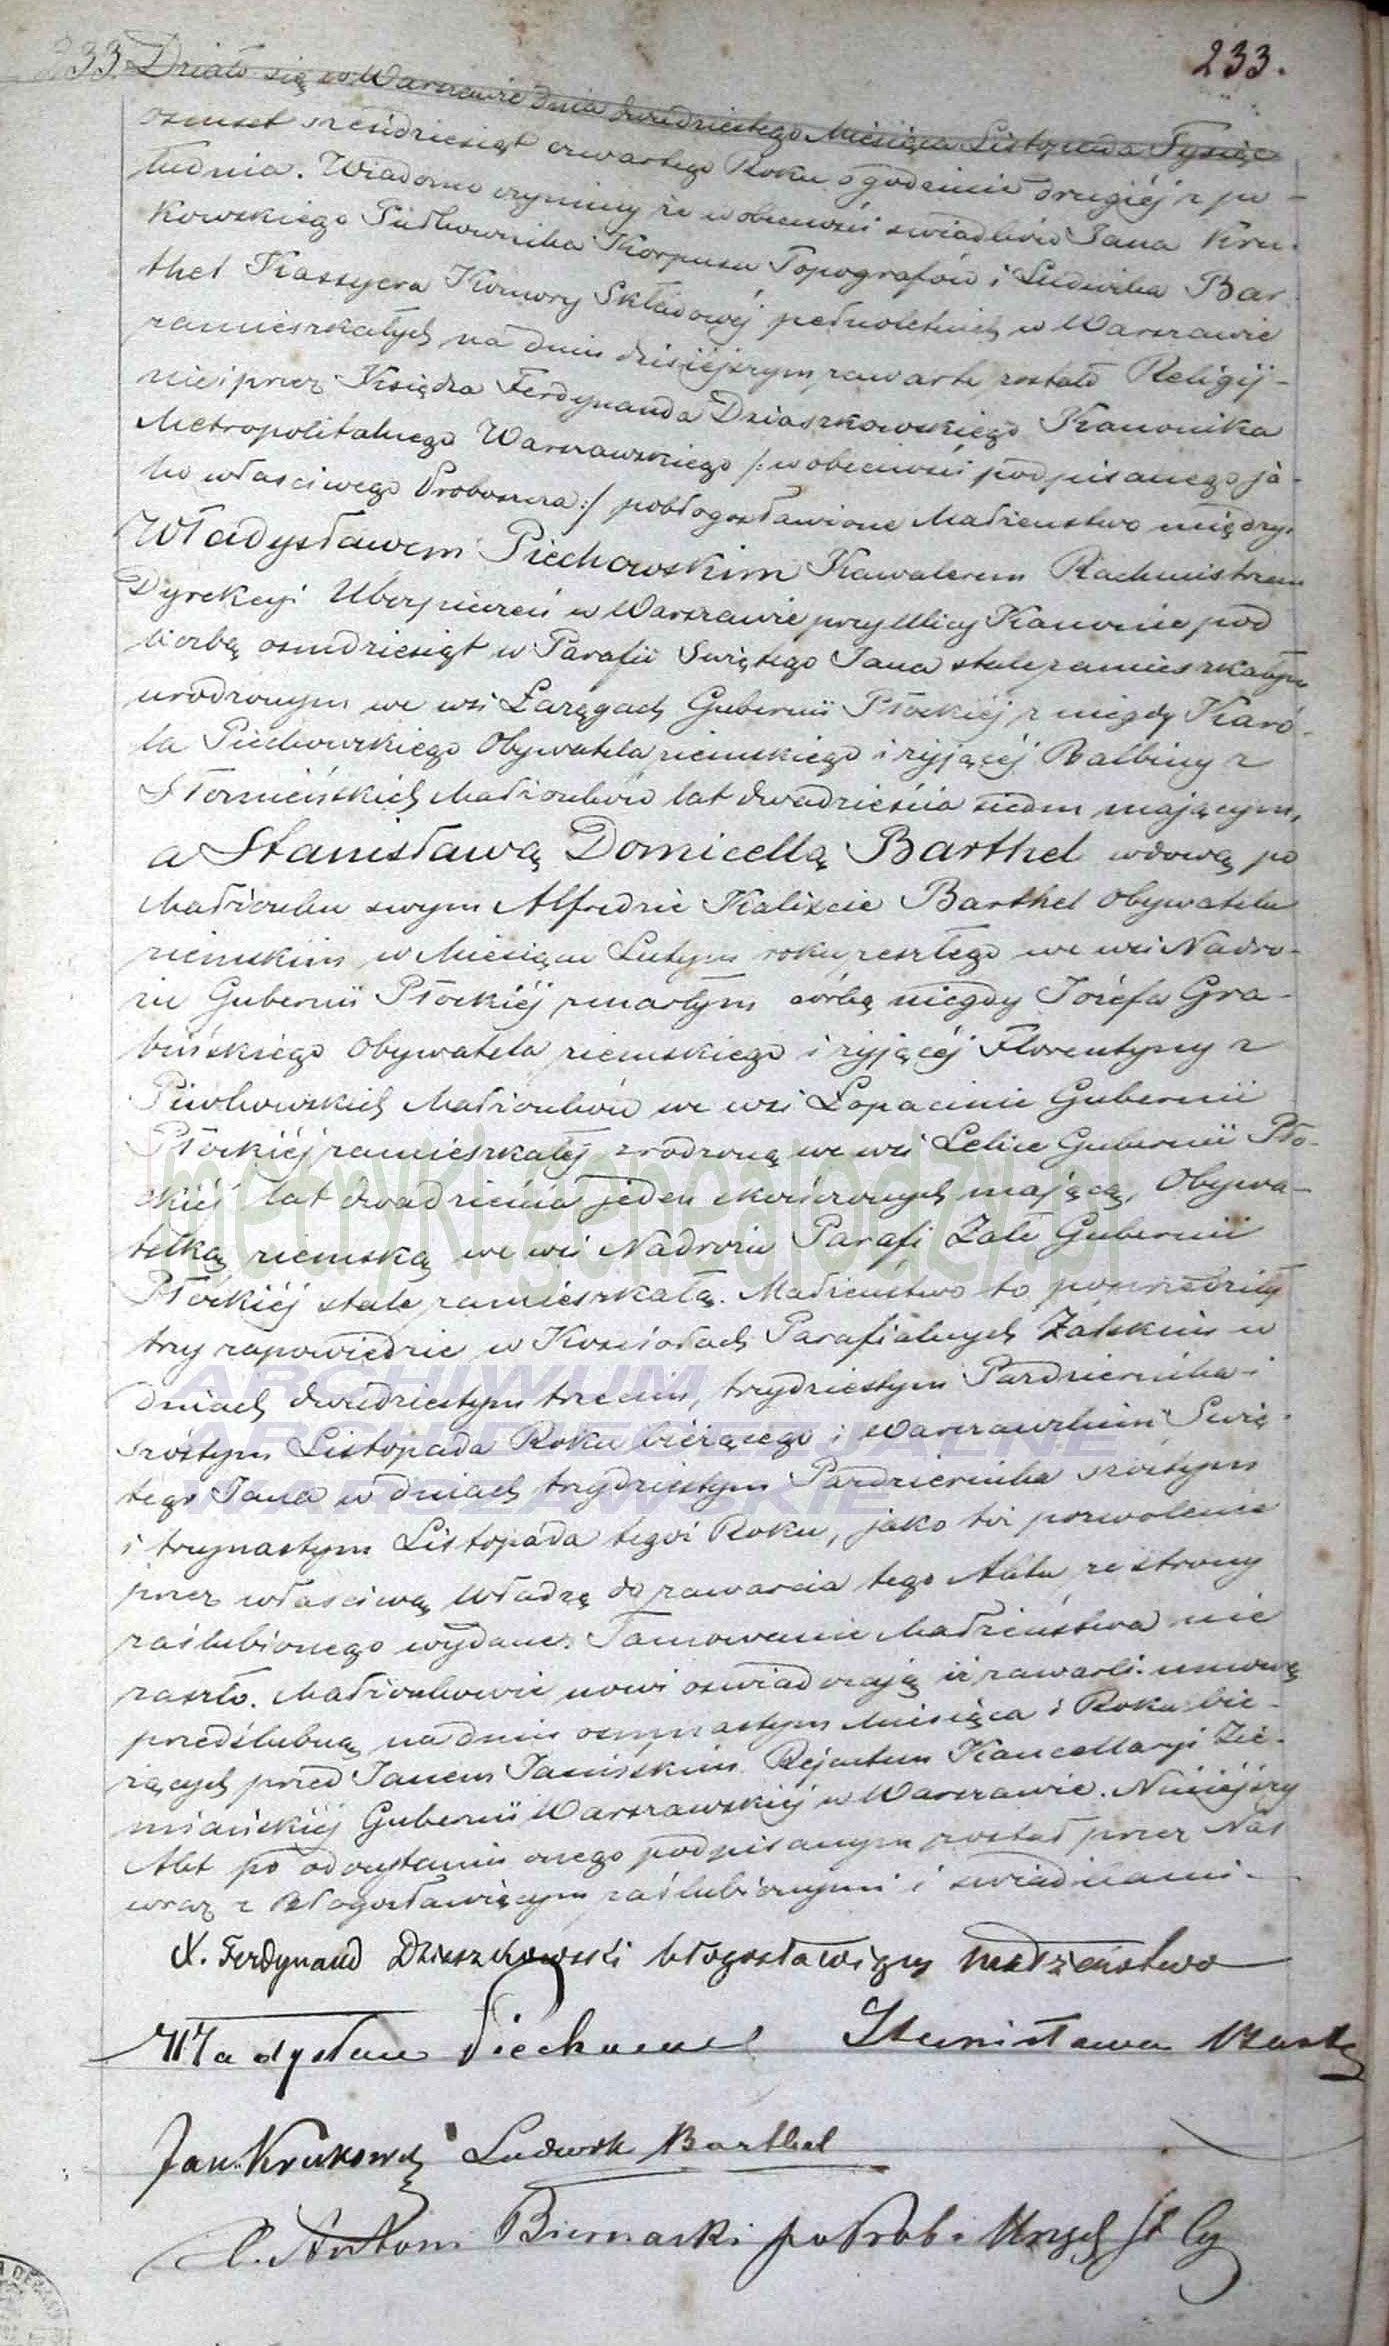 233.
233. Działo się w Warszawie dnia dwudziestego Miesiąca Listopada Tysiąc
osmset sześdziesiąt czwartego Roku o godzinie drugiéj z po-
łudnia. Wiadomo czynimy że w obecności świadków Jana Kru-
kowskiego Pułkownika Korpusu Topografów i Ludwika Bar-
thel Kassyera Komory Składowéj pełnoletnich w Warszawie
zamieszkałych na dniu dzisiéjszym zawarte zostało Religij-
nie i przez Księdza Ferdynanda Dziaszkowskiego Kanonika
Metropolitalnego Warszawskiego /: w obecności podpisanego ja-
ko właściwego Proboszcza :/ pobłogosławione Małżeństwo między
Władysławem Piechowskim Kawalerem Rachmistrzem
Dyrekcyi Ubezpieczeń w Warszawie przy Ulicy Kanonie pod
liczbą osmdziesiąt w Parafii Świętego Jana stale zamieszkałym
urodzonym we wsi Łazęgach Gubernii Płockiéj z niegdy Karo-
la Piechowskiego Obywatela ziemskiego i żyjącéj Balbiny z
Słomieńskich Małżonków lat dwadzieścia siedm mającym,
a Stanisławą Domicellą Barthel wdową po
Małżonku swym Alfredzie Kalixcie Barthel Obywatelu
ziemskim w Miesiącu Lutym roku zeszłego we wsi Nadro-
żu Gubernii Płockiéj zmarłym córką niegdy Józefa Gra-
bińskiego Obywatela ziemskiego i żyjącéj Florentyny z
Piwkowskich Małżonków we wsi Łopacinie Gubernii
Płockiéj zamieszkałéj zrodzoną we wsi Lelice Gubernii Pło-
ckiéj lat dwadzieścia jeden skończonych mającą, Obywa-
telką ziemską we wsi Nadrożu Parafi Żałe Gubernii
Płockiéj stale zamieszkałą. Małżeństwo to poprzedziły
trzy zapowiedzie w Kościołach Parafialnych Żalskim w
dniach dwudziestym trzecim, trzydziestym Października i
szóstym Listopada Roku bieżącego i Warszawskim Świę-
tego Jana w dniach trzydziestym Października szóstym
i trzynastym Listopada tegoż Roku, jako téż pozwolenie
przez właściwą Władzę do zawarcia tego Aktu ze strony
zaślubionego wydane. Tamowanie Małżeństwa nie
zaszło. Małżonkowie nowi oświadczają iż zawarli umowę
przedślubną na dniu osmnastym Miesiąca i Roku bie-
żących przed Janem Jasińskim Rejentem Kancellaryi Zie-
miańskiéj Gubernii Warszawskiéj w Warszawie. Niniéjszy
Akt po odczytaniu onego podpisanym został przez Nas
wraz z Błogosławiącym zaślubionymi i świadkami.-
X. Ferdynand Dziaszkowski błogosławiący małżeństwo
Władysław Piechowski Stanisława Barthel
Jan Krukowski Ludwik Barthel
X. Antoni Biernacki
metryki.genealodzy.pl
ARCHIWUM
ARCHIDIECEZJALNE
WARSZAWSKIE